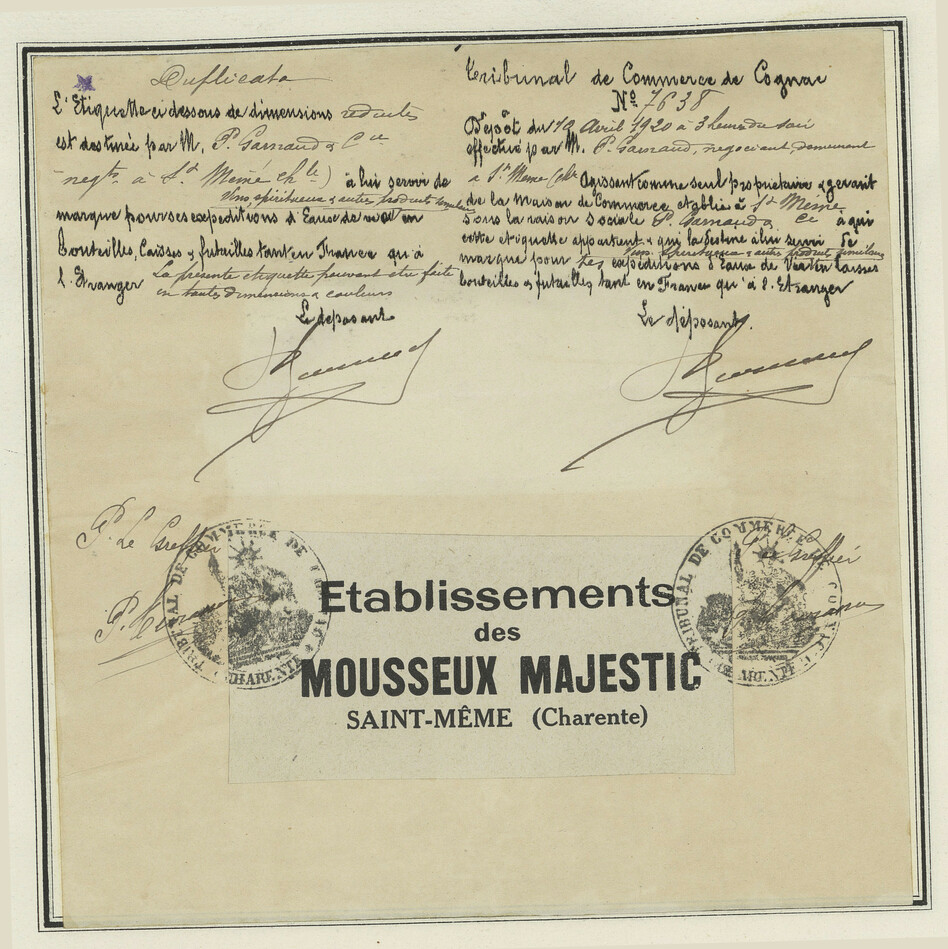 Duplicata
L'Etiquette ci dessous de dimensions reduites
est destinée par M. P. Garnaud & Cie
negts. à St Même (Chte) à lui servir de
vins, spiritueux & autres produits similaires
marque pour ses expéditions d'Eaux de vie en
bouteilles, Caisses & futailles tant en France qu'à
l'Etranger La présente etiquette pouvant etre faite
en toutes dimensions & couleurs
Le déposant
Tribunal de Commerce de Cognac
No 7638
Dépôt du 12 Avril 1920 à 3 heures du soir
effectué par M. P. Garnaud, negociant, demeurant
à St Même (Chte Agissant comme seul propriétaire & gerant
de la maison de Commerce établie à St Même
sous la raison sociale P. Garnaud & Cie à qui
cette etiquette appartient & qui la destine à lui servir de
vins, spiritueux & autres produits similaires
marque pour ses expéditions d'Eaux de Vie en Caisses
bouteilles & futailles tant en France qu'à l'Etranger
Le déposant.
P. Le Greffier
P. Le Greffier
TRIBUNAL DE COMMERCE DE COGNAC
CHARENTE
TRIBUNAL DE COMMERCE DE COGNAC
CHARENTE
Etablissements
des
MOUSSEUX MAJESTIC
SAINT-MÊME (Charente)